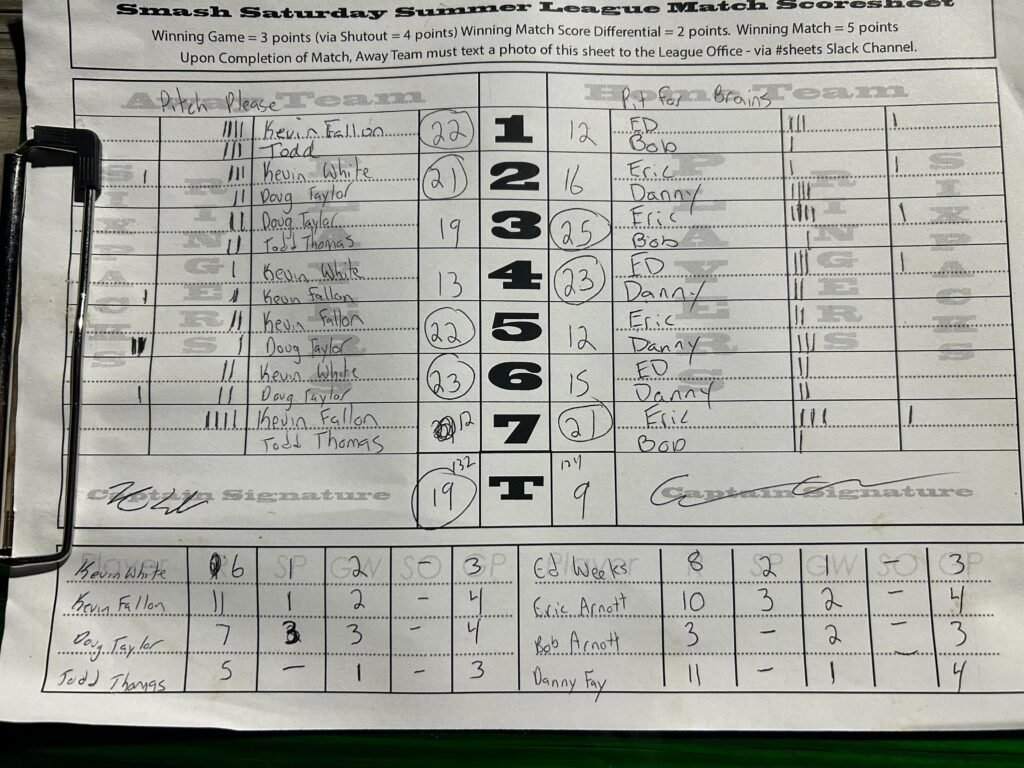 Smash Saturday Summer League Match Scoresheet
Winning Game = 3 points (via Shutout = 4 points) Winning Match Score Differential = 2 points. Winning Match = 5 points
Upon Completion of Match, Away Team must text a photo of this sheet to the League Office - via #sheets Slack Channel.
Away Team Home Team
Pitch Please Pit For Brains
SIXPACKS RINGERS PLAYERS PLAYERS RINGERS SIXPACKS
Kevin Fallon 22 1 12 ED
Todd Bob
Kevin White 21 2 16 Eric
Doug Taylor Danny
Doug Taylor 19 3 25 Eric
Todd Thomas Bob
Kevin White 13 4 23 ED
Kevin Fallon Danny
Kevin Fallon 22 5 12 Eric
Doug Taylor Danny
Kevin White 23 6 15 ED
Doug Taylor Danny
Kevin Fallon 12 7 21 Eric
Todd Thomas Bob
132 124
Captain Signature 19 T 9 Captain Signature
Player R SP GW SO GP Player R SP GW SO GP
Kevin White 6 1 2 - 3 Ed Weeks 8 2 1 - 3
Kevin Fallon 11 1 2 - 4 Eric Arnott 10 3 2 - 4
Doug Taylor 7 3 3 - 4 Bob Arnott 3 - 2 - 3
Todd Thomas 5 - 1 - 3 Danny Fay 11 - 1 - 4